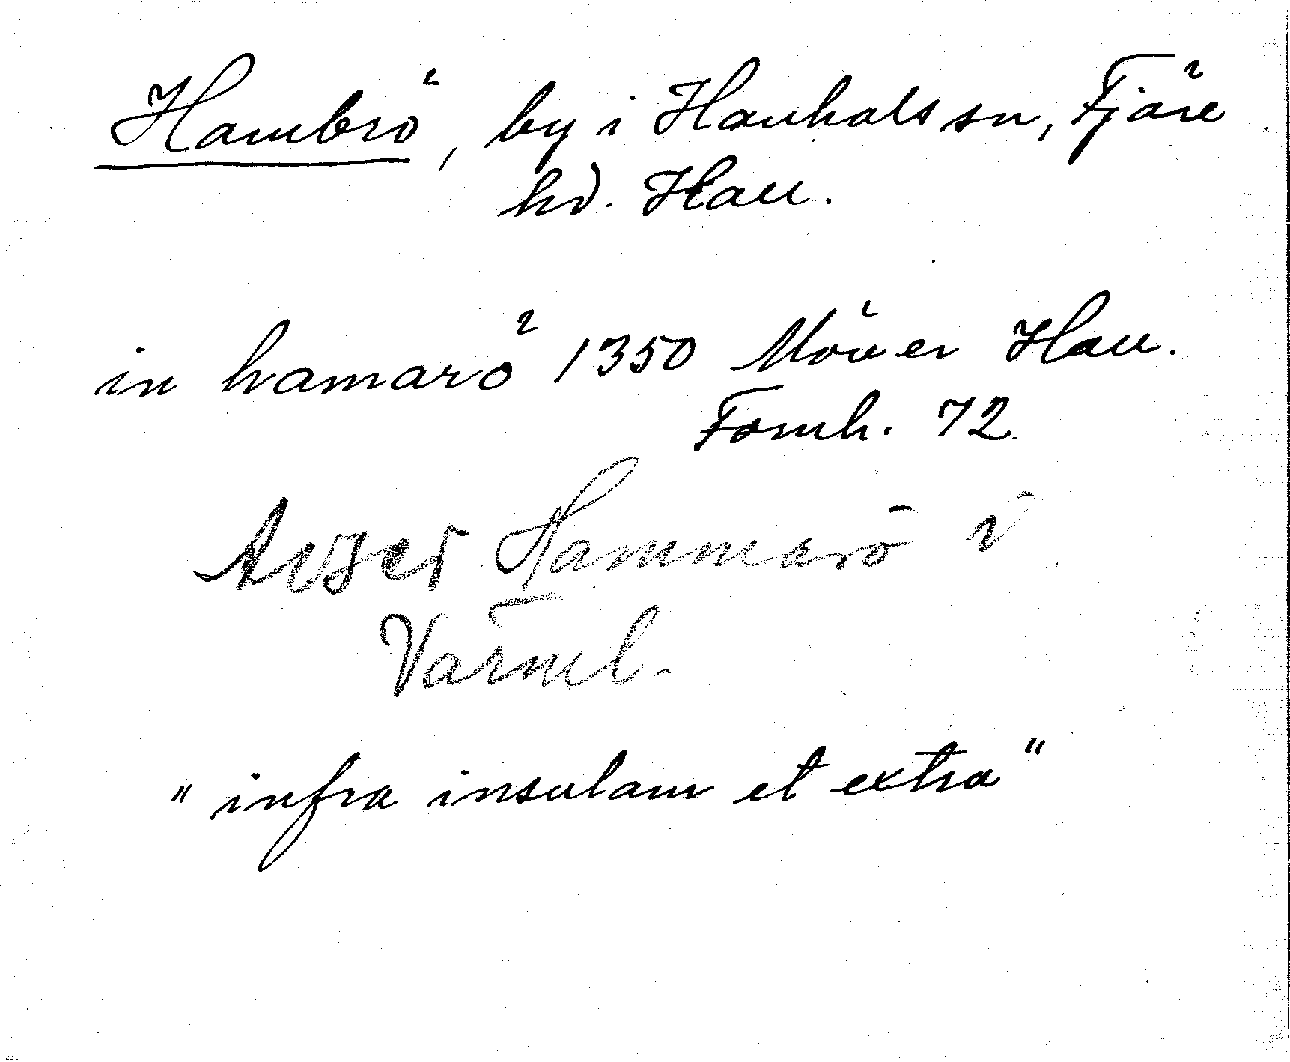 Hambrö, by i Hanhals sn, Fjäre
hd. Hall.
in hamarö 1350 Mörner Hall.
Fornh. 72
Avser Hammarö i
Värml.
"infra insulam et extra"